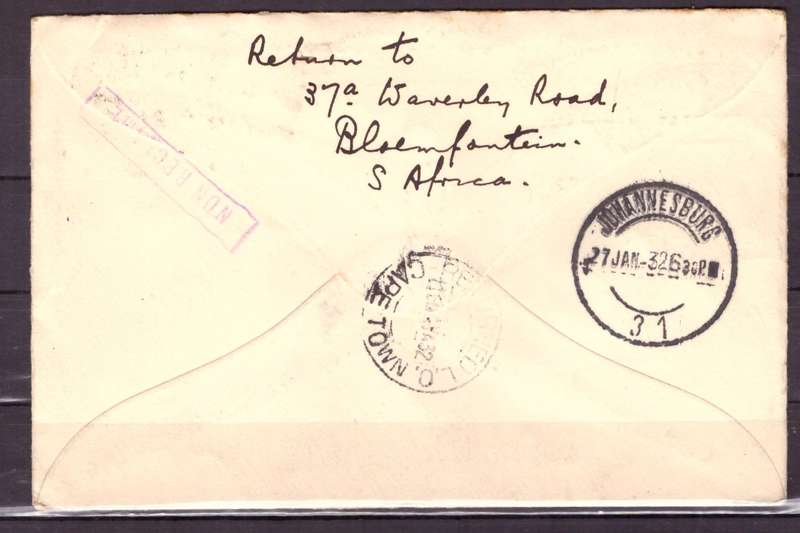 Return to
37a Waverley Road,
Bloemfontein.
S Africa.
NON
JOHANNESBURG
27 JAN-32 6 30 P.M.
31
CAPE TOWN
L.O.